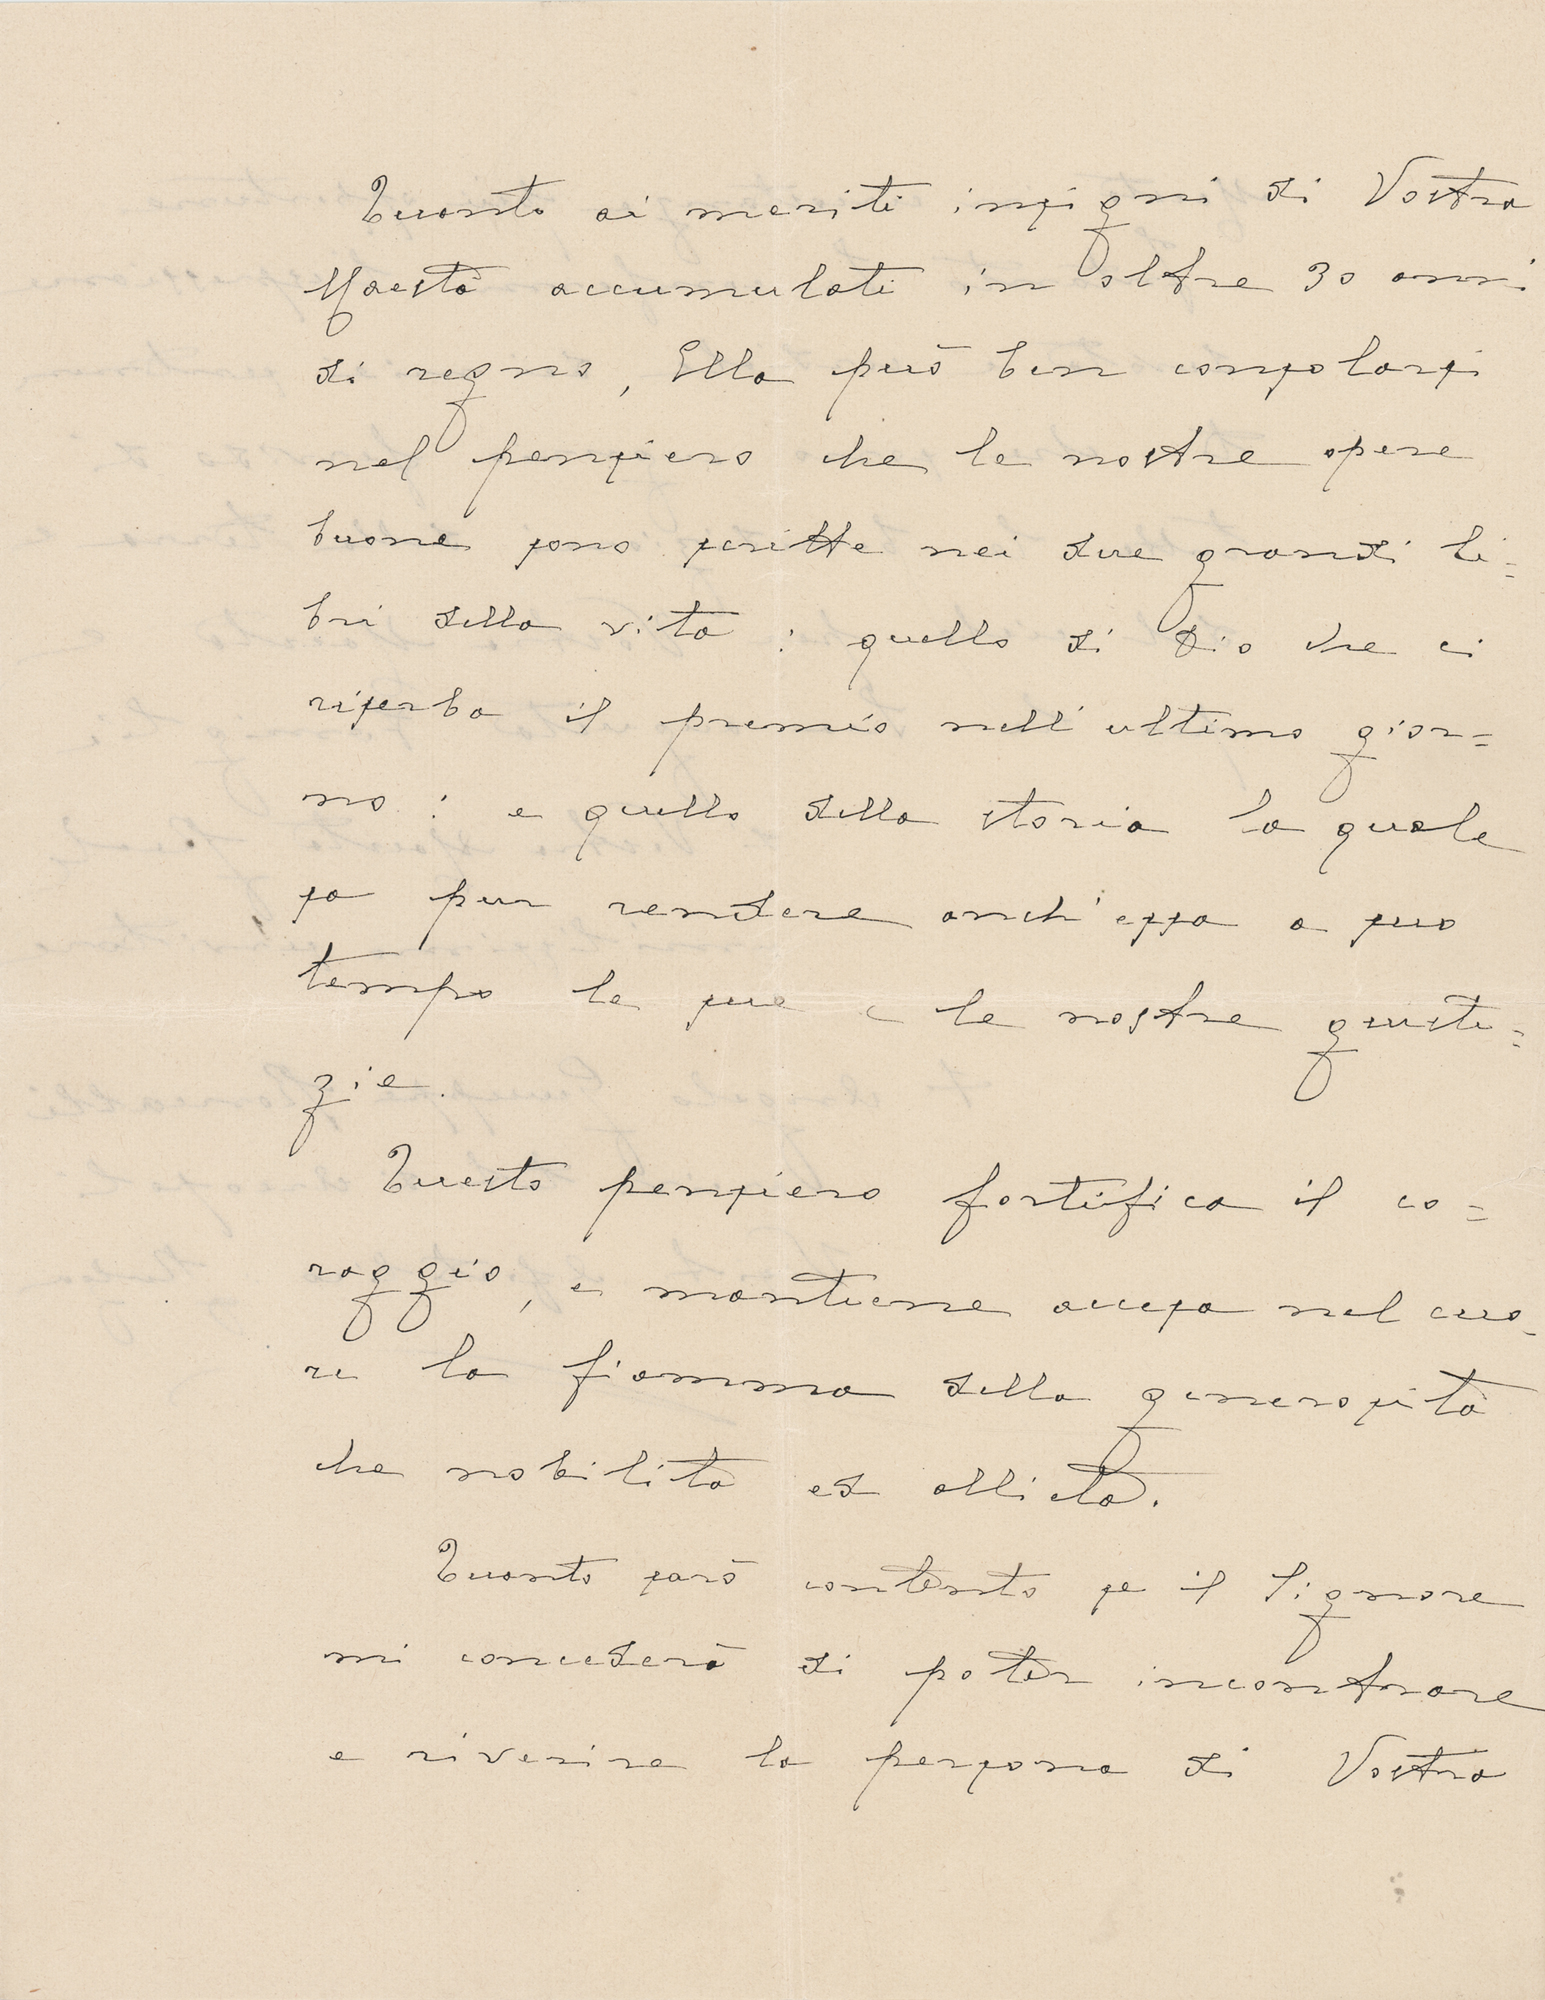 Quanto ai meriti insigni di Vostra
Maestà accumulati in oltre 30 anni
di regno, Ella può ben consolarsi
nel pensiero che le nostre opere
buone sono scritte nei due grandi li=
bri della vita : quello di Dio che ci
riserba il premio nell'ultimo gior=
no : e quello della storia la quale
sa pur rendere anch'essa a suo
tempo le sue e le nostre giusti=
zie.
Questo pensiero fortifica il co=
raggio, e mantiene accesa nel cuo=
re la fiamma della generosità
che nobilita ed allieta.
Quanto sarò contento se il Signore
mi concederà di poter incontrare
e riverire la persona di Vostra